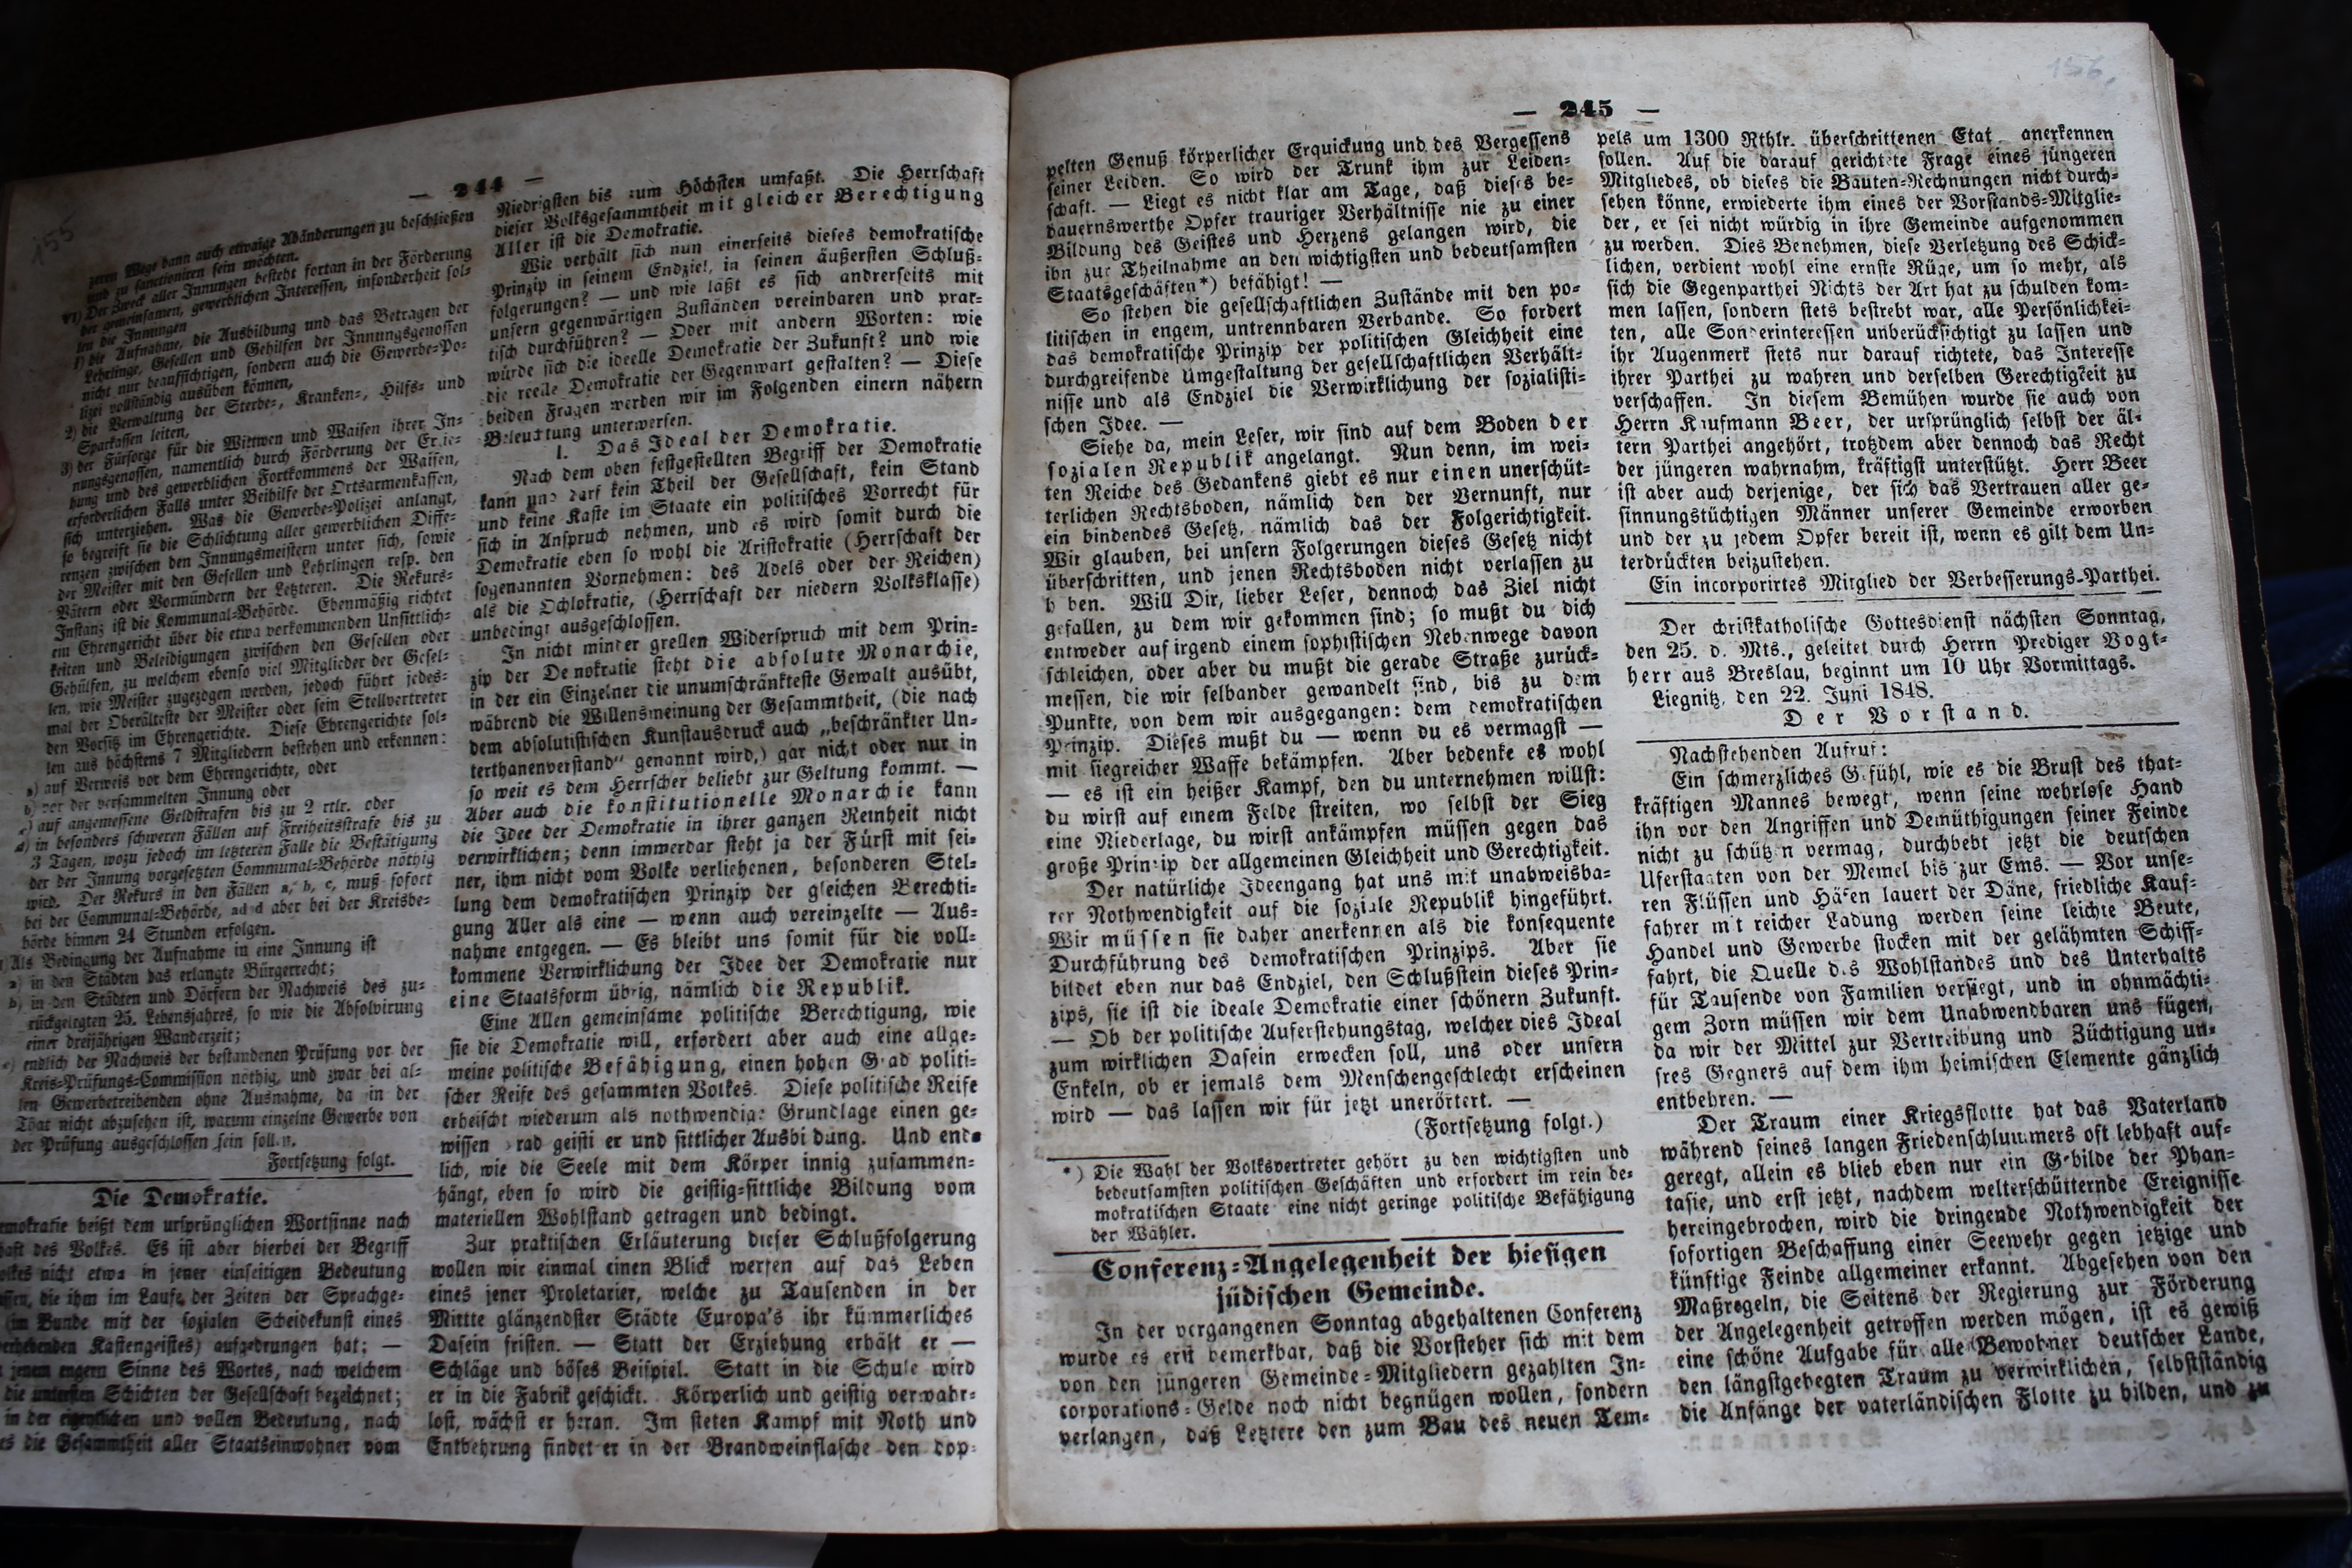 — 244 —
155
zem Wege dann auch etwaige Abänderungen zu beschließen
und zu sanctioniren sein möchten.
Der Zweck aller Innungen besteht fortan in der Förderung
der gemeinsamen, gewerblichen Interessen, insonderheit sol-
len die Innungen
1) die Aufnahme, die Ausbildung und das Betragen der
Lehrlinge, Gesellen und Gehilfen der Innungsgenossen
nicht nur beaufsichtigen, sondern auch die Gewerbe-Po-
lizei vollständig ausüben können,
2) die Verwaltung der Sterbe-, Kranken-, Hilfs- und
Sparkassen leiten,
3) der Fürsorge für die Wittwen und Waisen ihrer In-
nungsgenossen, namentlich durch Förderung der Erzie-
hung und des gewerblichen Fortkommens der Waisen,
erforderlichen Falls unter Beihilfe der Ortsarmenkassen,
sich unterziehen. Was die Gewerbe-Polizei anlangt,
so begreift sie die Schlichtung aller gewerblichen Diffe-
renzen zwischen den Innungsmeistern unter sich, sowie
der Meister mit den Gesellen und Lehrlingen resp. den
Vätern oder Vormündern der Letzteren. Die Rekurs-
Instanz ist die Kommunal-Behörde. Ebenmäßig richtet
ein Ehrengericht über die etwa vorkommenden Unsittlich-
keiten und Beleidigungen zwischen den Gesellen oder
Gehülfen, zu welchem ebenso viel Mitglieder der Gesel-
len, wie Meister zugezogen werden, jedoch führt jedes-
mal der Oberälteste der Meister oder sein Stellvertreter
den Vorsitz im Ehrengerichte. Diese Ehrengerichte sol-
len aus höchstens 7 Mitgliedern bestehen und erkennen:
a) auf Verweis vor dem Ehrengerichte, oder
b) vor der versammelten Innung oder
c) auf angemessene Geldstrafen bis zu 2 rtlr. oder
d) in besonders schweren Fällen auf Freiheitsstrafe bis zu
3 Tagen, wozu jedoch im letzteren Falle die Bestätigung
der der Innung vorgesetzten Communal-Behörde nöthig
wird. Der Rekurs in den Fällen a, b, c, muß sofort
bei der Communal-Behörde, ad d aber bei der Kreisbe-
hörde binnen 24 Stunden erfolgen.
Als Bedingung der Aufnahme in eine Innung ist
a) in den Städten das erlangte Bürgerrecht;
b) in den Städten und Dörfern der Nachweis des zu-
rückgelegten 25. Lebensjahres, so wie die Absolvirung
einer dreijährigen Wanderzeit;
c) endlich der Nachweis der bestandenen Prüfung vor der
Kreis-Prüfungs-Commission nöthig, und zwar bei al-
len Gewerbetreibenden ohne Ausnahme, da in der
That nicht abzusehen ist, warum einzelne Gewerbe von
der Prüfung ausgeschlossen sein sollen.
Fortsetzung folgt.
Die Demokratie.
emokratie heißt dem ursprünglichen Wortsinne nach
haft des Volkes. Es ist aber hierbei der Begriff
olkes nicht etwa in jener einseitigen Bedeutung
ssen, die ihm im Laufe der Zeiten der Sprachge-
(im Bunde mit der sozialen Scheidekunst eines
Kastengeistes) aufgedrungen hat; —
jenem engern Sinne des Wortes, nach welchem
die untersten Schichten der Gesellschaft bezeichnet;
in der eigentlichen und vollen Bedeutung, nach
es die Gesammtheit aller Staatseinwohner vom
Niedrigsten bis zum Höchsten umfaßt. Die Herrschaft
dieser Volksgesammtheit mit gleicher Berechtigung
Aller ist die Demokratie.
Wie verhält sich nun einerseits dieses demokratische
Prinzip in seinem Endziel, in seinen äußersten Schluß-
folgerungen? — und wie läßt es sich andrerseits mit
unsern gegenwärtigen Zuständen vereinbaren und prak-
tisch durchführen? — Oder mit andern Worten: wie
würde sich die ideelle Demokratie der Zukunft? und wie
die reelle Demokratie der Gegenwart gestalten? — Diese
beiden Fragen werden wir im Folgenden einern nähern
Beleuchtung unterwerfen.
1. Das Ideal der Demokratie.
Nach dem oben festgestellten Begriff der Demokratie
kann und darf kein Theil der Gesellschaft, kein Stand
und keine Kaste im Staate ein politisches Vorrecht für
sich in Anspruch nehmen, und es wird somit durch die
Demokratie eben so wohl die Aristokratie (Herrschaft der
sogenannten Vornehmen: des Adels oder der Reichen)
als die Ochlokratie, (Herrschaft der niedern Volksklasse)
unbedingt ausgeschlossen.
In nicht minder grellen Widerspruch mit dem Prin-
zip der Demokratie steht die absolute Monarchie,
in der ein Einzelner die unumschränkteste Gewalt ausübt,
während die Willensmeinung der Gesammtheit, (die nach
dem absolutistischen Kunstausdruck auch „beschränkter Un-
terthanenverstand“ genannt wird,) gar nicht oder nur in
so weit es dem Herrscher beliebt zur Geltung kommt. —
Aber auch die konstitutionelle Monarchie kann
die Idee der Demokratie in ihrer ganzen Reinheit nicht
verwirklichen; denn immerdar steht ja der Fürst mit sei-
ner, ihm nicht vom Volke verliehenen, besonderen Stel-
lung dem demokratischen Prinzip der gleichen Berechti-
gung Aller als eine — wenn auch vereinzelte — Aus-
nahme entgegen. — Es bleibt uns somit für die voll-
kommene Verwirklichung der Idee der Demokratie nur
eine Staatsform übrig, nämlich die Republik.
Eine Allen gemeinsame politische Berechtigung, wie
sie die Demokratie will, erfordert aber auch eine allge-
meine politische Befähigung, einen hohen Grad politi-
scher Reife des gesammten Volkes. Diese politische Reife
erheischt wiederum als nothwendige Grundlage einen ge-
wissen Grad geistiger und sittlicher Ausbildung. Und end-
lich, wie die Seele mit dem Körper innig zusammen-
hängt, eben so wird die geistig-sittliche Bildung vom
materiellen Wohlstand getragen und bedingt.
Zur praktischen Erläuterung dieser Schlußfolgerung
wollen wir einmal einen Blick werfen auf das Leben
eines jener Proletarier, welche zu Tausenden in der
Mittte glänzendster Städte Europa's ihr kümmerliches
Dasein fristen. — Statt der Erziehung erhält er —
Schläge und böses Beispiel. Statt in die Schule wird
er in die Fabrik geschickt. Körperlich und geistig verwahr-
lost, wächst er heran. Im steten Kampf mit Noth und
Entbehrung findet er in der Brandweinflasche den dop-
— 245 —
156.
pelten Genuß körperlicher Erquickung und des Vergessens
seiner Leiden. So wird der Trunk ihm zur Leiden-
schaft. — Liegt es nicht klar am Tage, daß dieses be-
dauernswerthe Opfer trauriger Verhältnisse nie zu einer
Bildung des Geistes und Herzens gelangen wird, die
ihn zur Theilnahme an den wichtigsten und bedeutsamsten
Staatsgeschäften*) befähigt! —
So stehen die gesellschaftlichen Zustände mit den po-
litischen in engem, untrennbaren Verbande. So fordert
das demokratische Prinzip der politischen Gleichheit eine
durchgreifende Umgestaltung der gesellschaftlichen Verhält-
nisse und als Endziel die Verwirklichung der sozialisti-
schen Idee. —
Siehe da, mein Leser, wir sind auf dem Boden der
sozialen Republik angelangt. Nun denn, im wei-
ten Reiche des Gedankens giebt es nur einen unerschüt-
terlichen Rechtsboden, nämlich den der Vernunft, nur
ein bindendes Gesetz, nämlich das der Folgerichtigkeit.
Wir glauben, bei unsern Folgerungen dieses Gesetz nicht
überschritten, und jenen Rechtsboden nicht verlassen zu
h ben. Will Dir, lieber Leser, dennoch das Ziel nicht
gefallen, zu dem wir gekommen sind; so mußt du dich
entweder auf irgend einem sophistischen Nebenwege davon
schleichen, oder aber du mußt die gerade Straße zurück-
messen, die wir selbander gewandelt sind, bis zu dem
Punkte, von dem wir ausgegangen: dem demokratischen
Prinzip. Dieses mußt du — wenn du es vermagst —
mit siegreicher Waffe bekämpfen. Aber bedenke es wohl
— es ist ein heißer Kampf, den du unternehmen willst:
du wirst auf einem Felde streiten, wo selbst der Sieg
eine Niederlage, du wirst ankämpfen müssen gegen das
große Prinzip der allgemeinen Gleichheit und Gerechtigkeit.
Der natürliche Ideengang hat uns mit unabweisba-
rer Nothwendigkeit auf die soziale Republik hingeführt.
Wir müssen sie daher anerkennen als die konsequente
Durchführung des demokratischen Prinzips. Aber sie
bildet eben nur das Endziel, den Schlußstein dieses Prin-
zips, sie ist die ideale Demokratie einer schönern Zukunft.
— Ob der politische Auferstehungstag, welcher dies Ideal
zum wirklichen Dasein erwecken soll, uns oder unsern
Enkeln, ob er jemals dem Menschengeschlecht erscheinen
wird — das lassen wir für jetzt unerörtert. —
(Fortsetzung folgt.)
*) Die Wahl der Volksvertreter gehört zu den wichtigsten und
bedeutsamsten politischen Geschäften und erfordert im rein de-
mokratischen Staate eine nicht geringe politische Befähigung
der Wähler.
Conferenz-Angelegenheit der hiesigen
jüdischen Gemeinde.
In der vergangenen Sonntag abgehaltenen Conferenz
wurde es erst bemerkbar, daß die Vorsteher sich mit dem
von den jüngeren Gemeinde-Mitgliedern gezahlten In-
corporations-Gelde noch nicht begnügen wollen, sondern
verlangen, daß Letztere den zum Bau des neuen Tem-
pels um 1300 Rthlr. überschrittenen Etat anerkennen
sollen. Auf die darauf gerichtete Frage eines jüngeren
Mitgliedes, ob dieses die Bauten-Rechnungen nicht durch-
sehen könne, erwiederte ihm eines der Vorstands-Mitglie-
der, er sei nicht würdig in ihre Gemeinde aufgenommen
zu werden. Dies Benehmen, diese Verletzung des Schick-
lichen, verdient wohl eine ernste Rüge, um so mehr, als
sich die Gegenparthei Nichts der Art hat zu schulden kom-
men lassen, sondern stets bestrebt war, alle Persönlichkei-
ten, alle Sonderinteressen unberücksichtigt zu lassen und
ihr Augenmerk stets nur darauf richtete, das Interesse
ihrer Parthei zu wahren und derselben Gerechtigkeit zu
verschaffen. In diesem Bemühen wurde sie auch von
Herrn Kaufmann Beer, der ursprünglich selbst der äl-
tern Parthei angehört, trotzdem aber dennoch das Recht
der jüngeren wahrnahm, kräftigst unterstützt. Herr Beer
ist aber auch derjenige, der sich das Vertrauen aller ge-
sinnungstüchtigen Männer unserer Gemeinde erworben
und der zu jedem Opfer bereit ist, wenn es gilt dem Un-
terdrückten beizustehen.
Ein incorporirtes Mitglied der Verbesserungs-Parthei.
Der christkatholische Gottesdienst nächsten Sonntag,
den 25. d. Mts., geleitet durch Herrn Prediger Vogt-
herr aus Breslau, beginnt um 10 Uhr Vormittags.
Liegnitz, den 22. Juni 1848.
Der Vorstand.
Nachstehenden Aufruf:
Ein schmerzliches Gefühl, wie es die Brust des that-
kräftigen Mannes bewegt, wenn seine wehrlose Hand
ihn vor den Angriffen und Demüthigungen seiner Feinde
nicht zu schützen vermag, durchbebt jetzt die deutschen
Uferstaaten von der Memel bis zur Ems. — Vor unse-
ren Flüssen und Häfen lauert der Däne, friedliche Kauf-
fahrer mit reicher Ladung werden seine leichte Beute,
Handel und Gewerbe stocken mit der gelähmten Schiff-
fahrt, die Quelle des Wohlstandes und des Unterhalts
für Tausende von Familien versiegt, und in ohnmächti-
gem Zorn müssen wir dem Unabwendbaren uns fügen,
da wir der Mittel zur Vertreibung und Züchtigung un-
sres Gegners auf dem ihm heimischen Elemente gänzlich
entbehren. —
Der Traum einer Kriegsflotte hat das Vaterland
während seines langen Friedenschlummers oft lebhaft auf-
geregt, allein es blieb eben nur ein Gebilde der Phan-
tasie, und erst jetzt, nachdem welterschütternde Ereignisse
hereingebrochen, wird die dringende Nothwendigkeit der
sofortigen Beschaffung einer Seewehr gegen jetzige und
künftige Feinde allgemeiner erkannt. Abgesehen von den
Maßregeln, die Seitens der Regierung zur Förderung
der Angelegenheit getroffen werden mögen, ist es gewiß
eine schöne Aufgabe für alle Bewohner deutscher Lande,
den längstgehegten Traum zu verwirklichen, selbstständig
die Anfänge der vaterländischen Flotte zu bilden, und zu